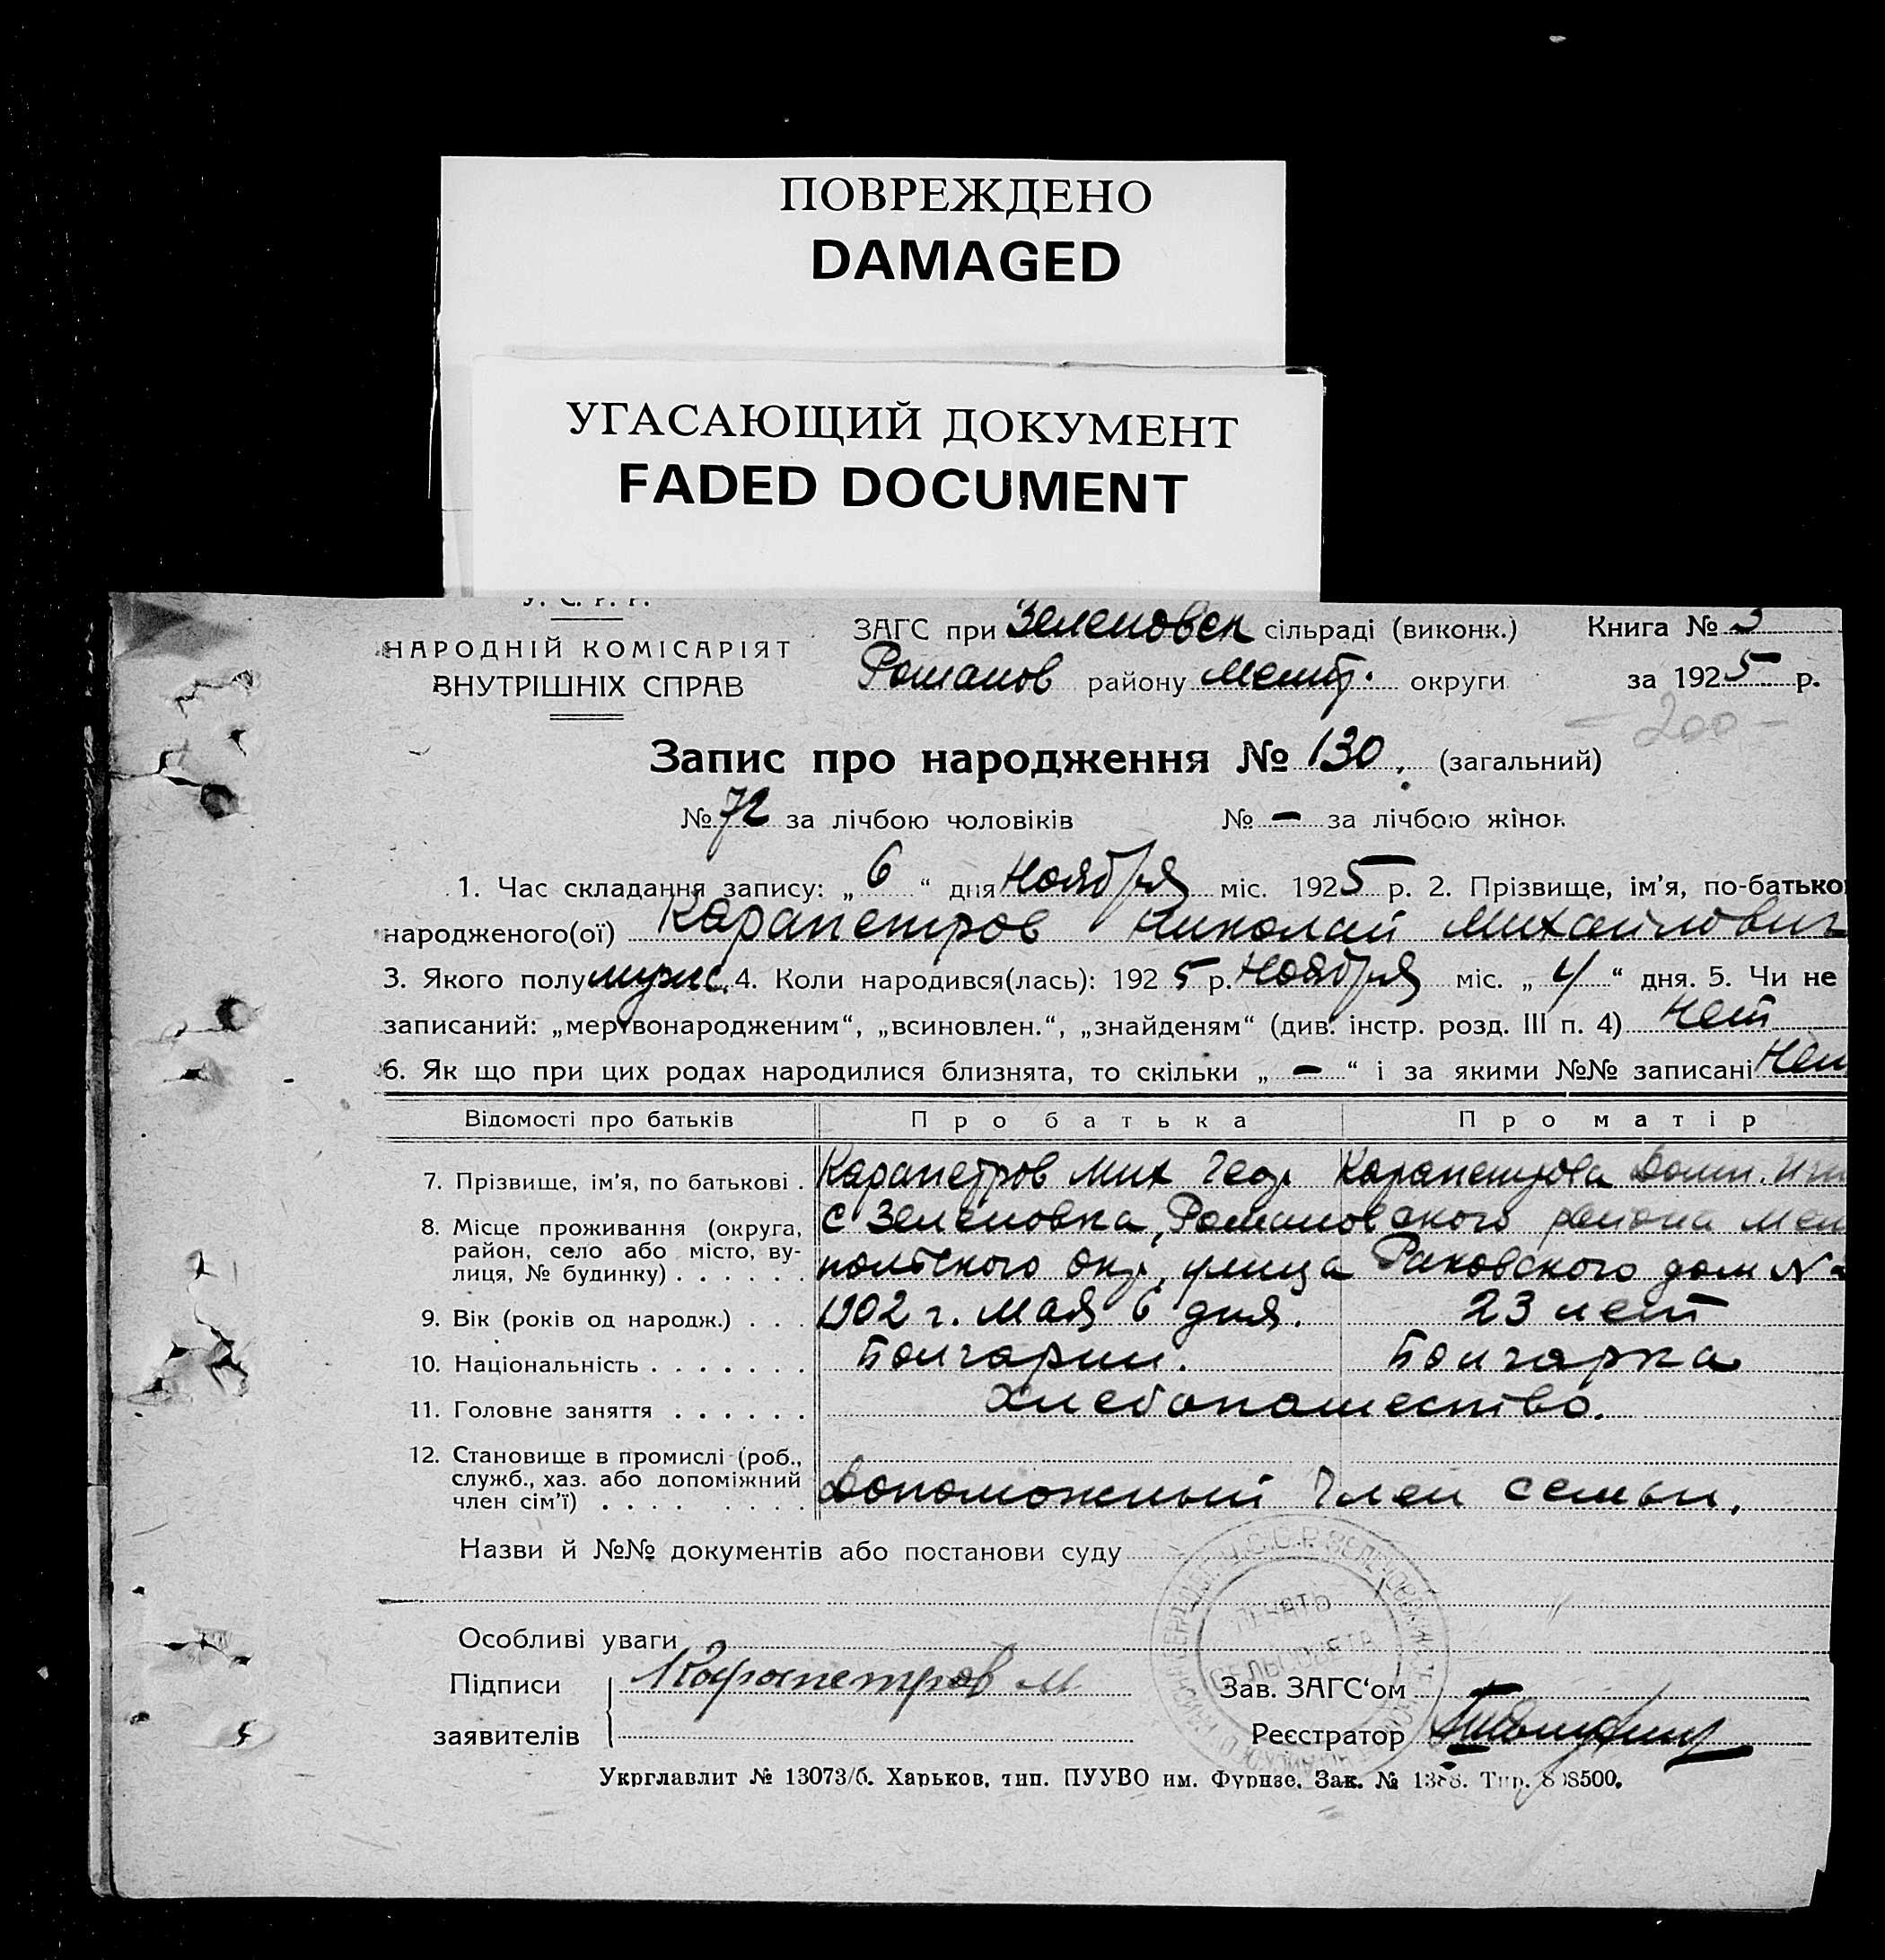 ПОВРЕЖДЕНО
DAMAGED
УГАСАЮЩИЙ ДОКУМЕНТ
FADED DOCUMENT
У. С. Р. Р.
НАРОДНІЙ КОМІСАРІЯТ
ВНУТРІШНІХ СПРАВ
ЗАГС при Зеленовск сільраді (виконк.) Книга № 3
Романов району Мелит. округи за 1925 р.
- 200 -
Запис про народження № 130. (загальний)
№ 72 за лічбою чоловіків № — за лічбою жінок
1. Час складання запису: „ 6 “ дня Ноября міс. 1925 р. 2. Прізвище, ім'я, по-батькo
народженого(ої) Карапетров Николай Михайлович
3. Якого полу мужс. 4. Коли народився(лась): 1925 р. Ноября міс. „ 4 “ дня. 5. Чи не
записаний: „мертвонародженим“, „всиновлен.“, „знайденям“ (див. інстр. розд. III п. 4) Нет
6. Як що при цих родах народилися близнята, то скільки „ — “ і за якими №№ записані Нет
Відомості про батьків Про батька Про матір
7. Прізвище, ім'я, по батькові . Карапетров Мих Геор Карапетрова Домн.
8. Місце проживання (округа, с Зеленовка, Романовского района Мели
район, село або місто, ву-
лиця, № будинку) . . . . . . польского окр, улица Раковского дом №
9. Вік (років од народж.) . . . 1902 г. мая 6 дня. 23 лет
10. Національність . . . . . . . Болгарин. Болгарка
11. Головне заняття . . . . . . Хлебопашество.
12. Становище в промислі (роб.,
служб., хаз. або допоміжний
член сім'ї) . . . . . . . . Допоможный Член семьи,
Назви й №№ документів або постанови суду
ПЕЧАТЬ
СЕЛЬСОВЕТА
Особливі уваги
Підписи Карапетров М Зав. ЗАГС‘ом
заявителів Реєстратор
Укрглавлит № 13073/б. Харьков, тип. ПУУВО им. Фрунзе. Зак. №